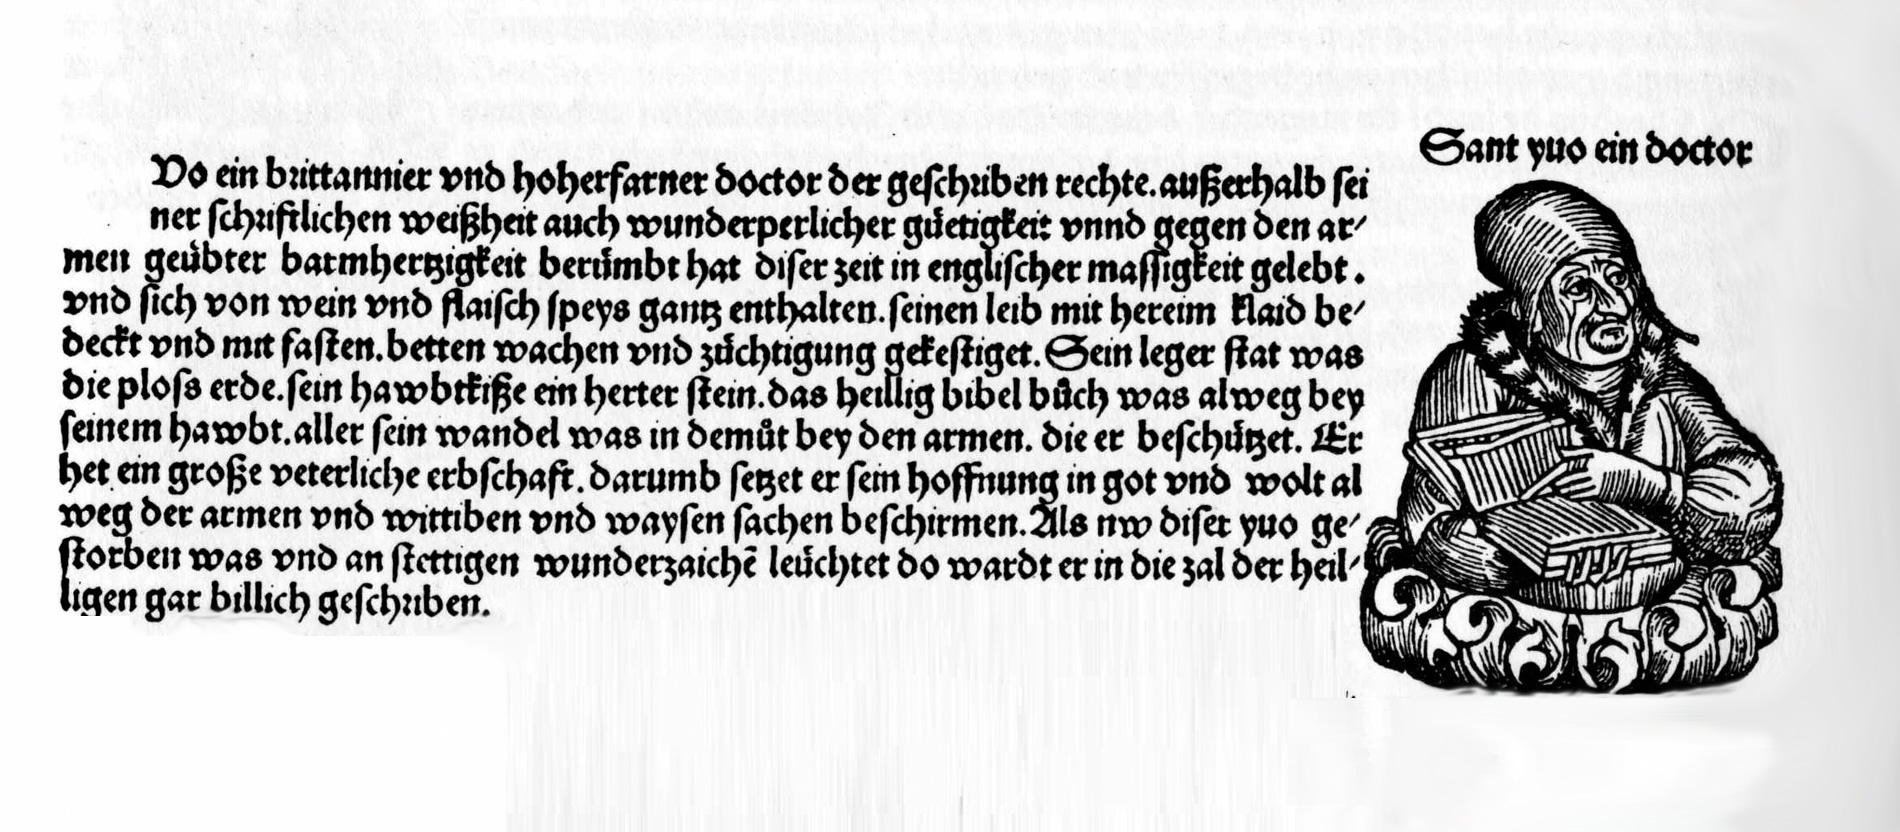 Sant yuo ein doctor
Vo ein brittannier vnd hoherfarner doctor der geschriben rechte. außerhalb sei
ner schriftlichen weißheit auch wunderperlicher gůetigkeit vnnd gegen den ar-
men geůbter barmhertzigkeit berůmbt hat diser zeit in englischer massigkeit gelebt.
vnd sich von wein vnd flaisch speys gantz enthalten. seinen leib mit hereim klaid be-
deckt vnd mit fasten. betten wachen vnd zůchtigung gekestiget. Sein leger stat was
die ploss erde. sein hawbtkiße ein herter stein. das heillig bibel bůch was alweg bey
seinem hawbt. aller sein wandel was in demůt bey den armen. die er beschůtzet. Er
het ein große veterliche erbschaft. darumb setzet er sein hoffnung in got vnd wolt al
weg der armen vnd wittiben vnd waysen sachen beschirmen. Als nw diser yuo ge-
storben was vnd an stettigen wunderzaichē leůchtet do wardt er in die zal der heil-
ligen gar billich geschriben.